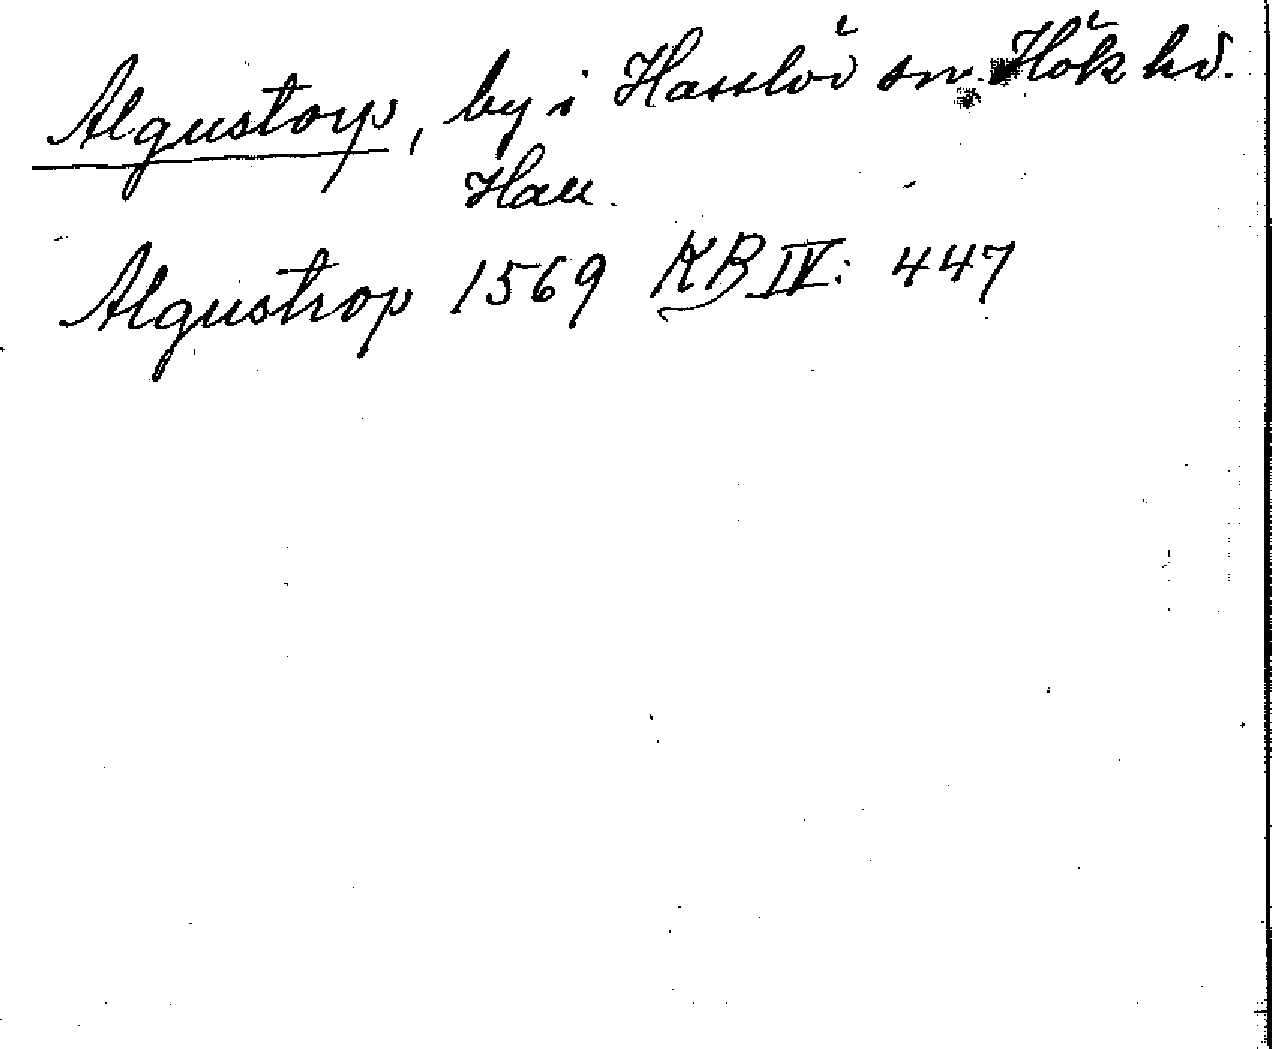 Algustorp, by i Hasslöv sn. Hök hd.
Hall.
Algustrop 1569 KB IV: 447